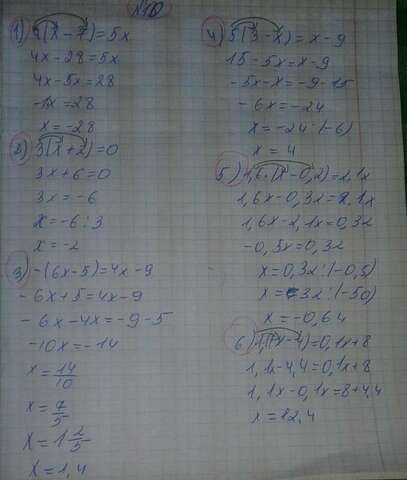 1) 4(x-7)=5x
4x-28=5x
4x-5x=28
-1x=28
x=-28
2) 3(x+2)=0
3x+6=0
3x=-6
x=-6:3
x=-2
3) -(6x-5)=4x-9
-6x+5=4x-9
-6x-4x=-9-5
-10x=-14
x=14/10
x=7/5
x=1 2/5
x=1,4
4) 5(3-x)=x-9
15-5x=x-9
-5x-x=-9-15
-6x=-24
x=-24:(-6)
x=4
5) 1,6·(x-0,2)=2,1x
1,6x-0,32=2,1x
1,6x-2,1x=0,32
x=0,32:(-0,5)
x=32:(-50)
x=-0,64
6) 1,1(x-4)=0,1x+8
1,1x-4,4=0,1x+8
1,1x-0,1x=8+4,4
x=12,4